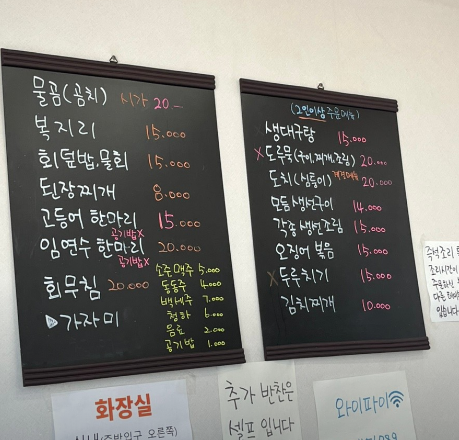 물곰(곰치) 시가 20.-
복지리 15.000
회덮밥,물회 15.000
된장찌개 8.000
고등어 한마리 15.000
공기밥X
임연수 한마리 20.000
공기밥X
회무침 20.000
▷가자미
소주 맥주 5.000
동동주 4.000
백세주 7.000
청하 6.000
음료 2.000
공기밥 1.000
(2인이상 주문메뉴)
생대구탕 15.000
X 도루묵(구이,찌개,조림) 20.000
도치(심퉁이) 계절메뉴 20.000
모듬 생선구이 14.000
각종 생선조림 15.000
오징어 볶음 15.000
X 두루치기 15.000
김치찌개 10.000
즉석조리
조리시간이
다른
있습니다
화장실
추가 반찬은
셀프 입니다
와이파이